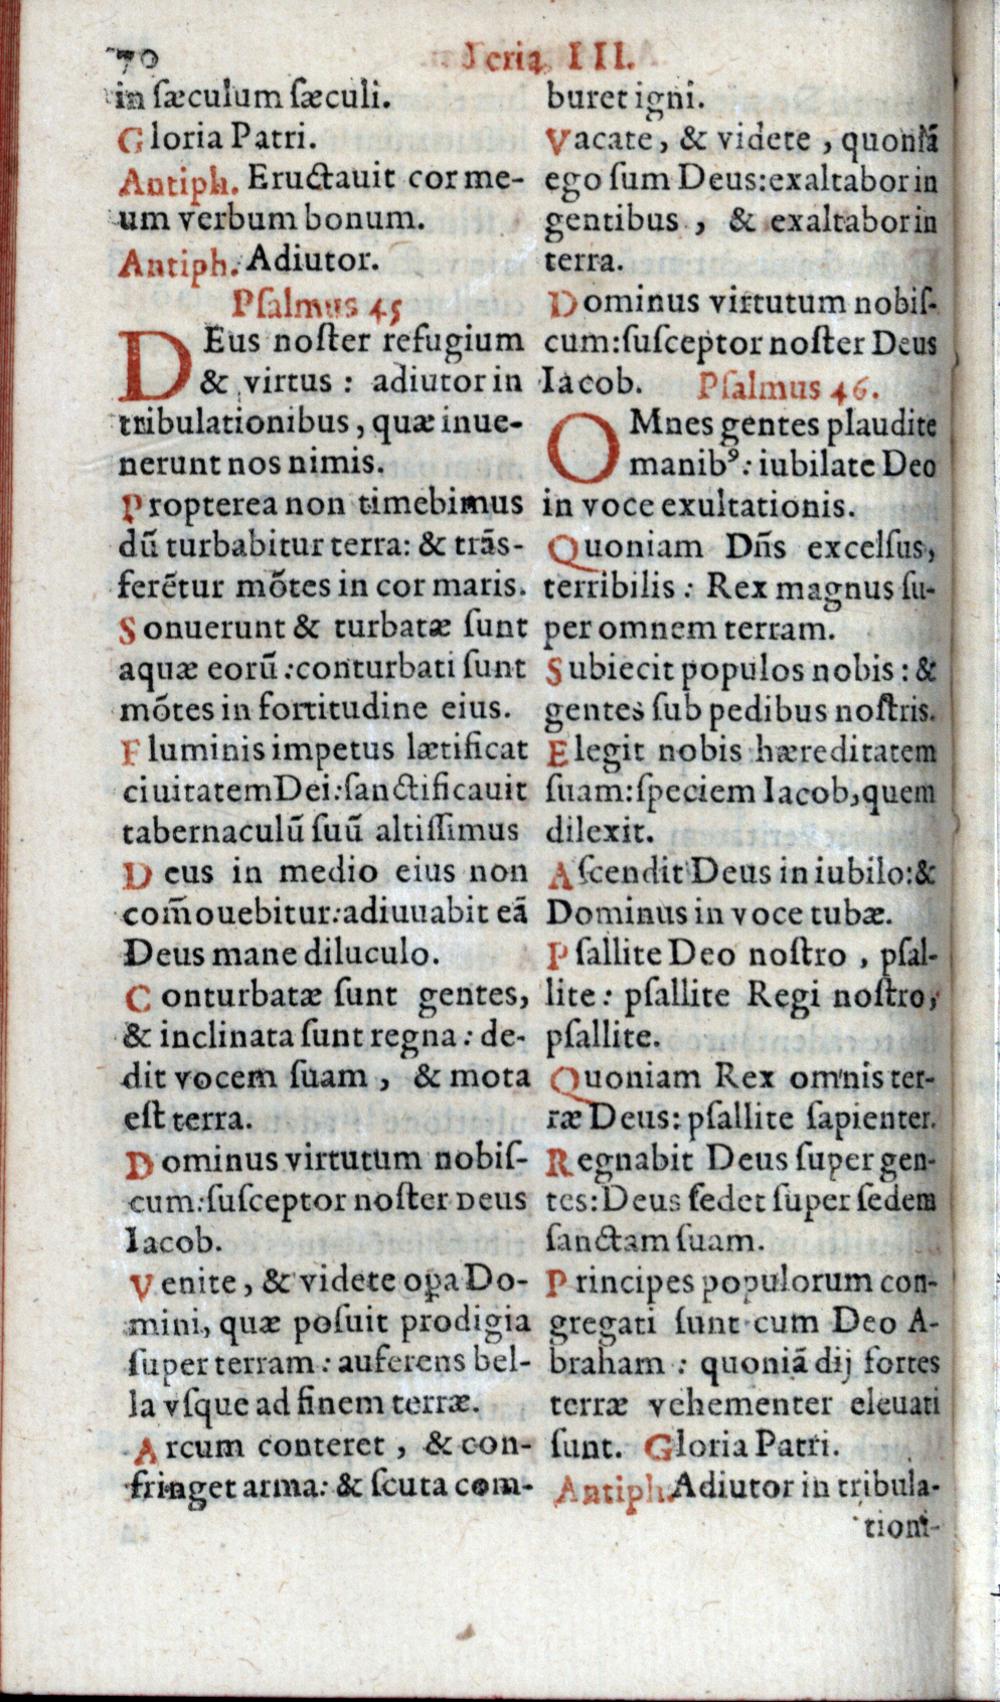 70
Feria III.
in ſæculum ſæculi.
Gloria Patri.
Antiph. Eructauit cor me-
um verbum bonum.
Antiph. Adiutor.
Pſalmus 45
DEus noſter refugium
& virtus : adiutor in
tribulationibus, quæ inue-
nerunt nos nimis.
Propterea non timebimus
dũ turbabitur terra: & trãs-
ferẽtur mõtes in cor maris.
Sonuerunt & turbatæ ſunt
aquæ eorũ : conturbati ſunt
mõtes in fortitudine eius.
Fluminis impetus lætificat
ciuitatem Dei: ſanctificauit
tabernaculũ ſuũ altiſſimus
Deus in medio eius non
com̃ouebitur: adiuuabit eã
Deus mane diluculo.
Conturbatæ ſunt gentes,
& inclinata ſunt regna : de-
dit vocem ſuam , & mota
eſt terra.
Dominus virtutum nobiſ-
cum: ſuſceptor noſter Deus
Iacob.
Venite, & videte opa Do-
mini, quæ poſuit prodigia
ſuper terram : auferens bel-
la vſque ad finem terræ.
Arcum conteret , & con-
fringet arma: & ſcuta com-
buret igni.
Vacate, & videte , quoniã
ego ſum Deus: exaltabor in
gentibus , & exaltabor in
terra.
Dominus virtutum nobiſ-
cum: ſuſceptor noſter Deus
Iacob. Pſalmus 46.
OMnes gentes plaudite
manibꝰ: iubilate Deo
in voce exultationis.
Quoniam Dñs excelſus,
terribilis : Rex magnus ſu-
per omnem terram.
Subiecit populos nobis : &
gentes ſub pedibus noſtris.
Elegit nobis hæreditatem
ſuam: ſpeciem Iacob, quem
dilexit.
Aſcendit Deus in iubilo: &
Dominus in voce tubæ.
Pſallite Deo noſtro , pſal-
lite : pſallite Regi noſtro,
pſallite.
Quoniam Rex omnis ter-
ræ Deus: pſallite ſapienter.
Regnabit Deus ſuper gen-
tes: Deus ſedet ſuper ſedem
ſanctam ſuam.
Principes populorum con-
gregati ſunt cum Deo A-
braham : quoniã dij fortes
terræ vehementer eleuati
ſunt. Gloria Patri.
Antiph. Adiutor in tribula-
tioni-